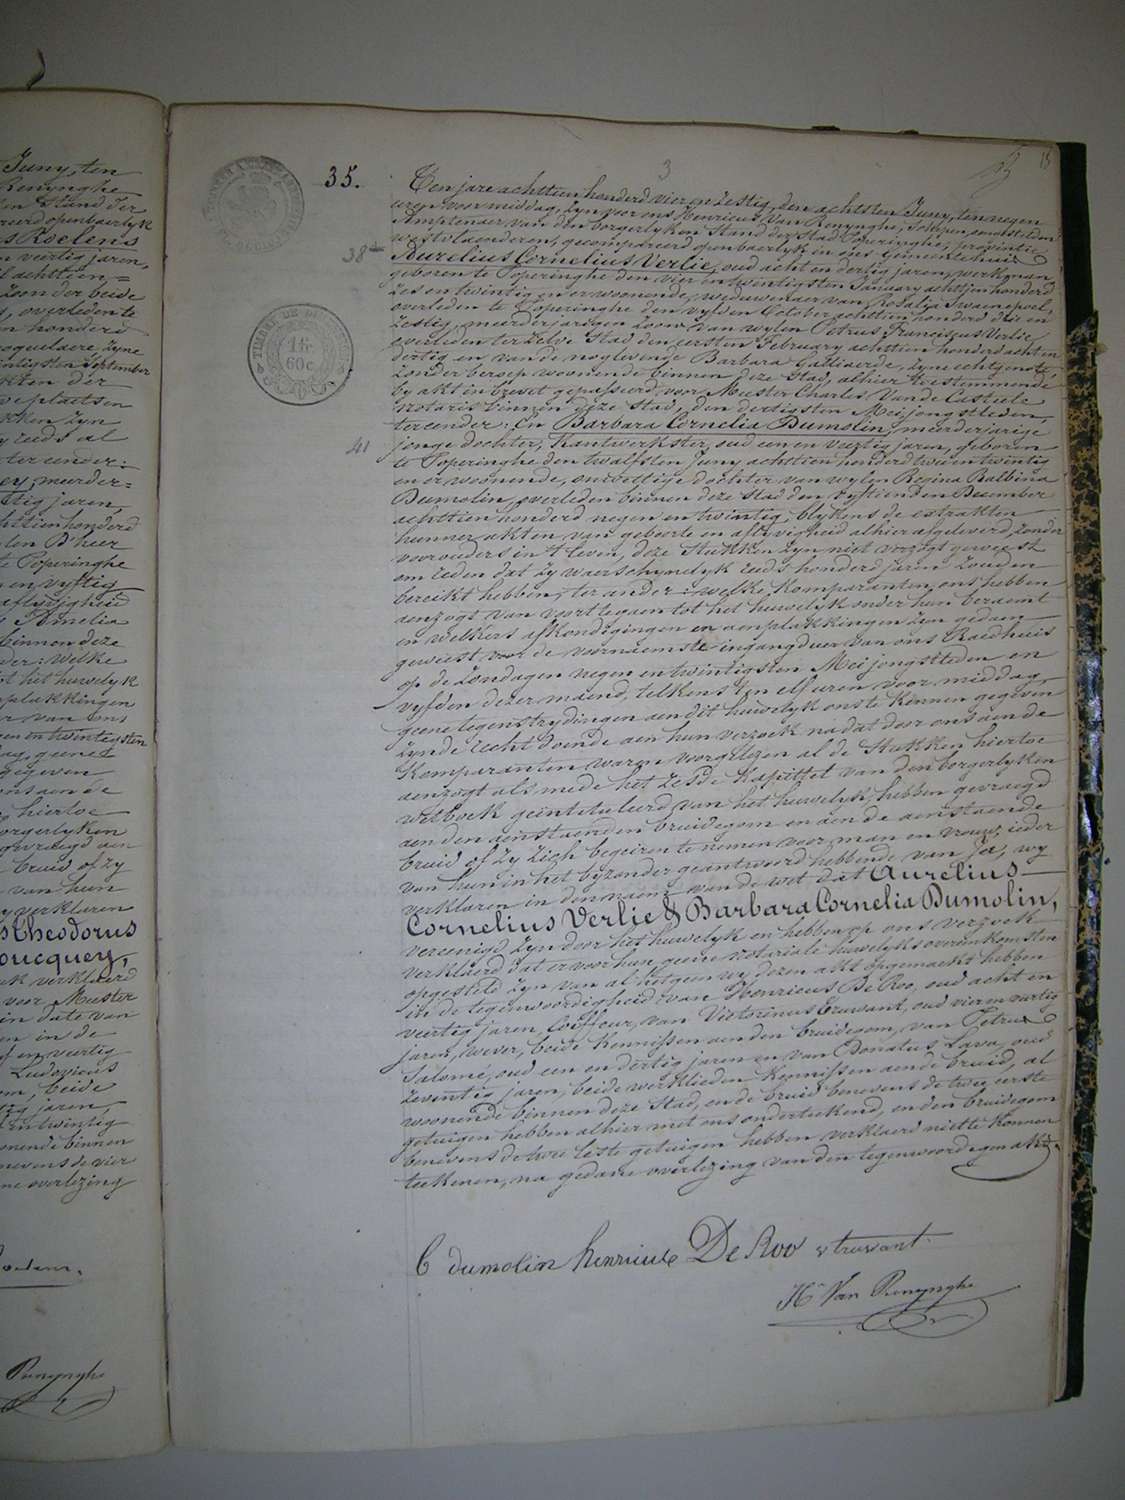 Juny, ten
Renynghe
Stand der
openbaerlyk
Roelens
veertig jaren,
achttien
Zoon der beide
overleden te
honderd
Zyne
September
akten der
Zyn
reeds al
ter eender:
meerder=
jaren,
achttien honderd
Poperinghe
en vyftig
aflyvigheid
Amelia
binnen deze
welke
het huwelyk
aenplakkingen
van ons
en twintigsten
geene
gegeven
ons aen de
hiertoe
borgerlyken
gevraegd aen
bruid of zy
van hun
wy verklaren
Theodorus
oucquey,
verklaerd
voor Meester
in date van
in de
en veertig
Ludovicus
beide
jaren,
twintig
woonende binnen
benevens de vier
overlezing
Renynghe
3
15
35.
38
41
TIMBRE DE DIMENSION
1 fr
60 c
Ten jare achttien honderd vier en zestig, den achtsten Juny, ten negen
uren voormiddag, zyn voor ons Henricus Van Renynghe, Schepen,
Amptenaer van den borgerlyken Stand der Stad Poperinghe, provintie
westvlaenderen, gecompareerd openbaerlyk in ons Gemeentehuis
Aurelius Cornelius Verlie, oud acht en dertig jaren, werkman,
geboren te Poperinghe den vier en twintigsten January achttien honderd
zes en twintig en er woonende, weduwenaer van Rosalia Swaenepoel,
overleden te Poperinghe den vyfden October achttien honderd drie en
zestig, meerderjarigen zoon van wylen Petrus Franciscus Verlie
overleden ter zelve Stad den eersten February achttien honderd acht en
dertig en van de nog levende Barbara Galliaerde, zyne echtgenote,
zonder beroep woonende binnen deze Stad, alhier toestemmende
by akt in brevet gepasseerd voor Meester Charles Van de Casteele
notaris binnen deze Stad, den dertigsten Mei jongstleden,
ter eender: En Barbara Cornelia Dumolin, meerderjarige
jonge dochter, Kantwerkster, oud een en veertig jaren, geboren
te Poperinghe den twalfsten Juny achttien honderd twee en twintig
en er woonende, onwettige dochter van wylen Regina Balbina
Dumolin, overleden binnen deze Stad den vyftienden December
achttien honderd negen en twintig, blykens de extrakten
hunner akten van geboorte en aflyvigheid alhier afgeleverd, zonder
voorouders in 't leven, deze Stukken zyn niet verzogt geweest
om reden dat zy waerschynelyk reeds honderd jaren zouden
bereikt hebben, ter ander: welke Komparanten ons hebben
aenzogt van voort te gaen tot het huwelyk onder hun beraemt
en welkers afkondigingen en aenplakkingen zyn gedaen
geweest voor de voornaemste ingangdeur van ons Raedhuis
op de zondagen negen en twintigsten Mei jongstleden en
vyfden dezer maend, telkens ten elf uren voor middag
geene tegenstrydingen aen dit huwelyk ons te kennen gegeven
zynde recht doende aen hun verzoek na dat door ons aen de
Komparanten waren voorgelezen al de Stukken hiertoe
aenzogt als mede het zesde Kapittel van den borgerlyken
wetboek geïntituleerd van het huwelyk, hebben gevraegd
aen den aenstaenden bruidegom en aen de aenstaende
bruid of zy zich begeiren te nemen voor man en vrouw, ieder
van hun in het byzonder geantwoord hebbende van Ja, wy
verklaren in den naem van de wet dat Aurelius
Cornelius Verlie & Barbara Cornelia Dumolin,
vereenigd zyn door het huwelyk en hebben op ons verzoek
verklaerd dat er voor hun geene notariale huwelyksovereenkomsten
opgesteld zyn van al hetgeen wy dezen akt opgemaekt hebben
in de tegenwoordigheid van Henricus De Roo, oud acht en
veertig jaren, Coiffeur, van Victorinus Truwant, oud vier en veertig
jaren, wever, beide Kennissen aen den bruidegom, van Petrus
Salomé, oud een en dertig jaren en van Donatus Lava, oud
zeventig jaren, beide werklieden Kennissen aen de bruid, al
woonende binnen deze Stad, en de bruid benevens de twee eerste
getuigen hebben alhier met ons onderteekend, en den bruidegom
benevens de twee leste getuigen hebben verklaerd niet te Konnen
teekenen, na gedane overlezing van den tegenwoordigen akt.
C dumolin henricus De Roo v truwant
H. Van Renynghe